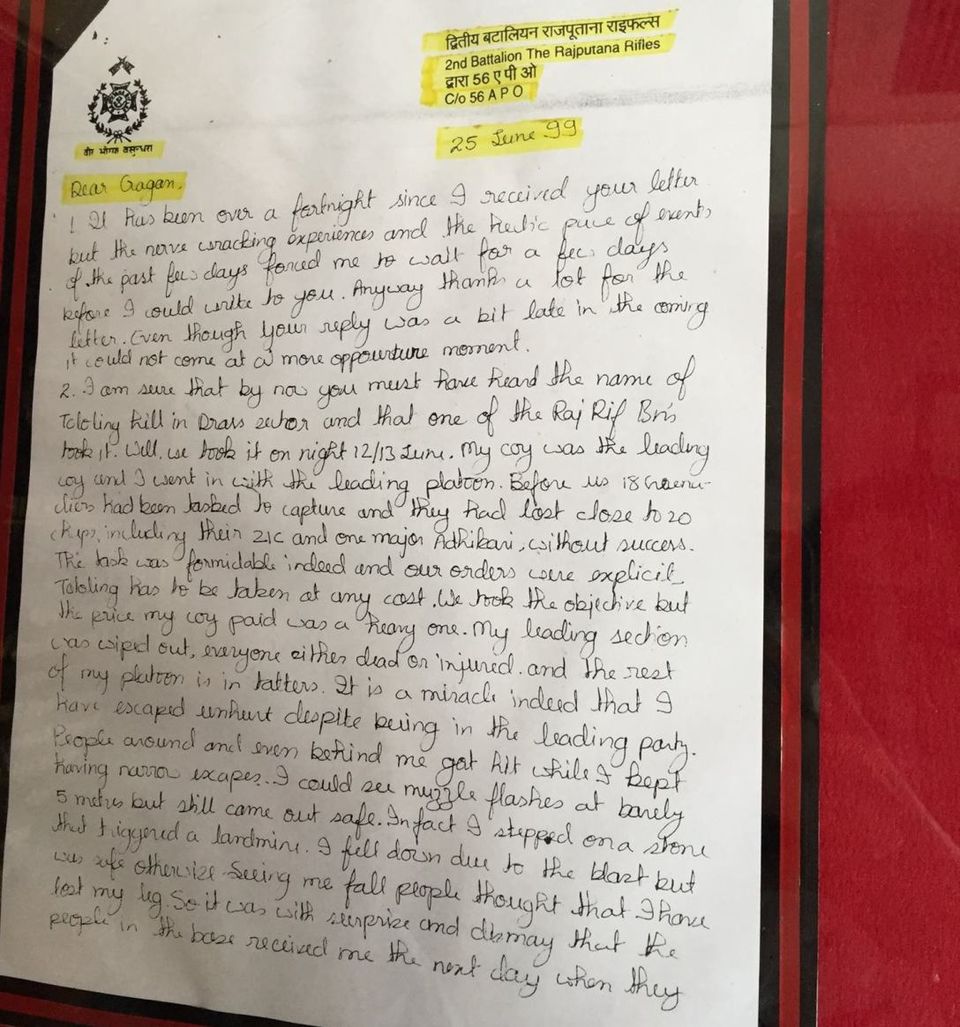 द्वितीय बटालियन राजपूताना राइफल्स
2nd Battalion The Rajputana Rifles
द्वारा 56 ए पी ओ
C/o 56 A P O
वीर भोग्या वसुन्धरा
25 June 99
Dear Gagan,
1. It has been over a fortnight since I received your letter
but the nerve wracking experiences and the hectic pace of events
of the past few days forced me to wait for a few days
before I could write to you. Anyway thanks a lot for the
letter. Even though your reply was a bit late in the coming
it could not come at a more moment.
2. I am sure that by now you must have heard the name of
Tololing hill in Drass sector and that one of the Raj Rif Bn's
took it. Well, we took it on night 12/13 June. My coy was the leading
coy and I went in with the leading platoon. Before us 18 Grena-
diers had been tasked to capture and they had lost close to 20
chaps, including their 2IC and one major Adhikari, without success.
The task was formidable indeed and our orders were explicit
Tololing has to be taken at any cost. We took the objective but
the price my coy paid was a heavy one. My leading section
was wiped out, everyone either dead or injured. and the rest
of my platoon is in tatters. It is a miracle indeed that I
have escaped unhurt despite being in the leading party.
People around and even behind me got hit while I kept
having narrow escapes. I could see muzzle flashes at barely
5 metres but still came out safe. Infact I stepped on a stone
that triggered a landmine. I fell down due to the blast but
was safe otherwise. Seeing me fall people thought that I have
lost my leg. So it was with surprize and dismay that the
people in the base received me the next day when they